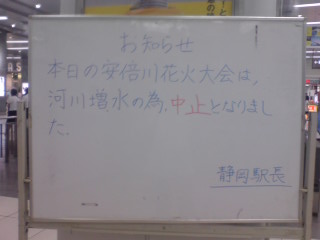 お知らせ
本日の安倍川花火大会は、
河川増水の為、中止となりまし
た。
静岡駅長